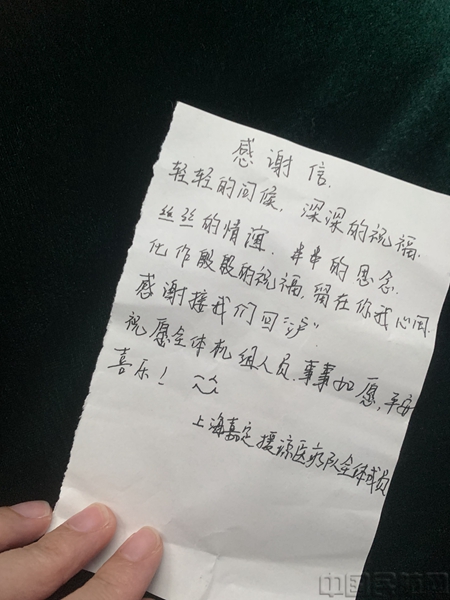 感谢信.
轻轻的问候,深深的祝福.
丝丝的情谊.串串的思念.
化作殷殷的祝福.留在你我心间.
感谢接我们回“沪”.
祝愿全体机组人员.事事如愿,平安
喜乐!
上海嘉定援琼医疗队全体成员
中国民航网